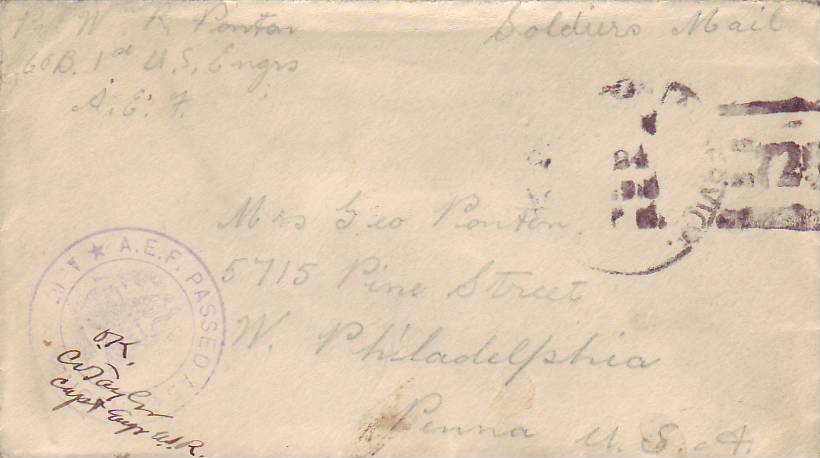 W. R. Ponton
Soldiers Mail
Co B. 1st U.S. Engrs
A. E. F.
24
Mrs Geo Ponton
5715 Pine Street
W. Philadelphia
Penna U. S. A.
A.E.F. PASSED
O.K.
CW Taylor
Capt Engr U.S.R.